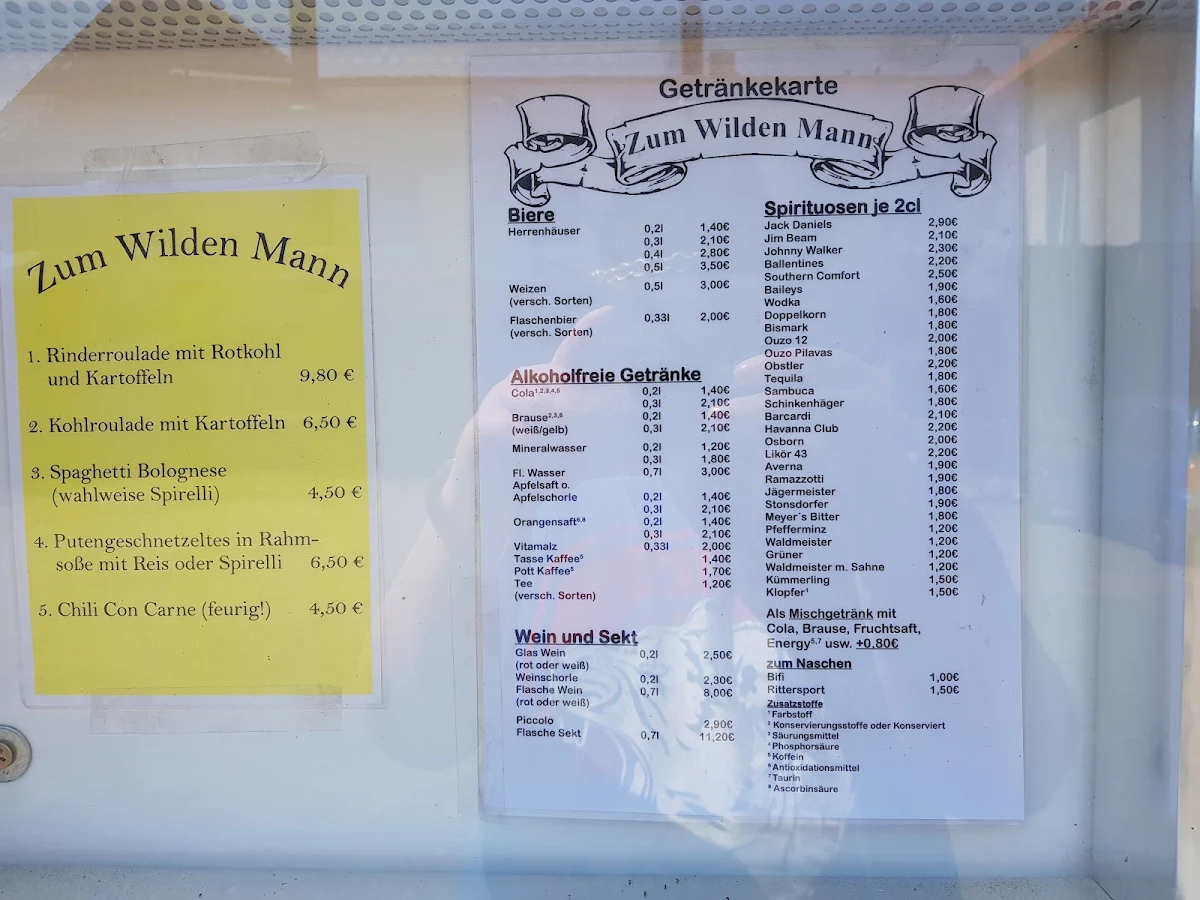 Zum Wilden Mann
1. Rinderroulade mit Rotkohl
und Kartoffeln 9,80 €
2. Kohlroulade mit Kartoffeln 6,50 €
3. Spaghetti Bolognese
(wahlweise Spirelli) 4,50 €
4. Putengeschnetzeltes in Rahm-
soße mit Reis oder Spirelli 6,50 €
5. Chili Con Carne (feurig!) 4,50 €
Getränkekarte
Zum Wilden Mann
Biere
Herrenhäuser 0,2l 1,40€
0,3l 2,10€
0,4l 2,80€
0,5l 3,50€
Weizen 0,5l 3,00€
(versch. Sorten)
Flaschenbier 0,33l 2,00€
(versch. Sorten)
Alkoholfreie Getränke
Cola¹,²,³,⁴,⁵ 0,2l 1,40€
0,3l 2,10€
Brause²,³,⁶ 0,2l 1,40€
(weiß/gelb) 0,3l 2,10€
Mineralwasser 0,2l 1,20€
0,3l 1,80€
Fl. Wasser 0,7l 3,00€
Apfelsaft o.
Apfelschorle 0,2l 1,40€
0,3l 2,10€
Orangensaft⁶,⁸ 0,2l 1,40€
0,3l 2,10€
Vitamalz 0,33l 2,00€
Tasse Kaffee⁵ 1,40€
Pott Kaffee⁵ 1,70€
Tee 1,20€
(versch. Sorten)
Wein und Sekt
Glas Wein 0,2l 2,50€
(rot oder weiß)
Weinschorle 0,2l 2,30€
Flasche Wein 0,7l 8,00€
(rot oder weiß)
Piccolo 2,90€
Flasche Sekt 0,7l 11,20€
Spirituosen je 2cl
Jack Daniels 2,90€
Jim Beam 2,10€
Johnny Walker 2,30€
Ballentines 2,20€
Southern Comfort 2,50€
Baileys 1,90€
Wodka 1,60€
Doppelkorn 1,80€
Bismark 1,80€
Ouzo 12 2,00€
Ouzo Pilavas 1,80€
Obstler 2,20€
Tequila 1,80€
Sambuca 1,60€
Schinkenhäger 1,80€
Barcardi 2,10€
Havanna Club 2,20€
Osborn 2,00€
Likör 43 2,20€
Averna 1,90€
Ramazzotti 1,90€
Jägermeister 1,80€
Stonsdorfer 1,90€
Meyer´s Bitter 1,80€
Pfefferminz 1,20€
Waldmeister 1,20€
Grüner 1,20€
Waldmeister m. Sahne 1,20€
Kümmerling 1,50€
Klopfer¹ 1,50€
Als Mischgetränk mit
Cola, Brause, Fruchtsaft,
Energy⁵,⁷ usw. +0.80€
zum Naschen
Bifi 1,00€
Rittersport 1,50€
Zusatzstoffe
¹ Farbstoff
² Konservierungsstoffe oder Konserviert
³ Säurungsmittel
⁴ Phosphorsäure
⁵ Koffein
⁶ Antioxidationsmittel
⁷ Taurin
⁸ Ascorbinsäure